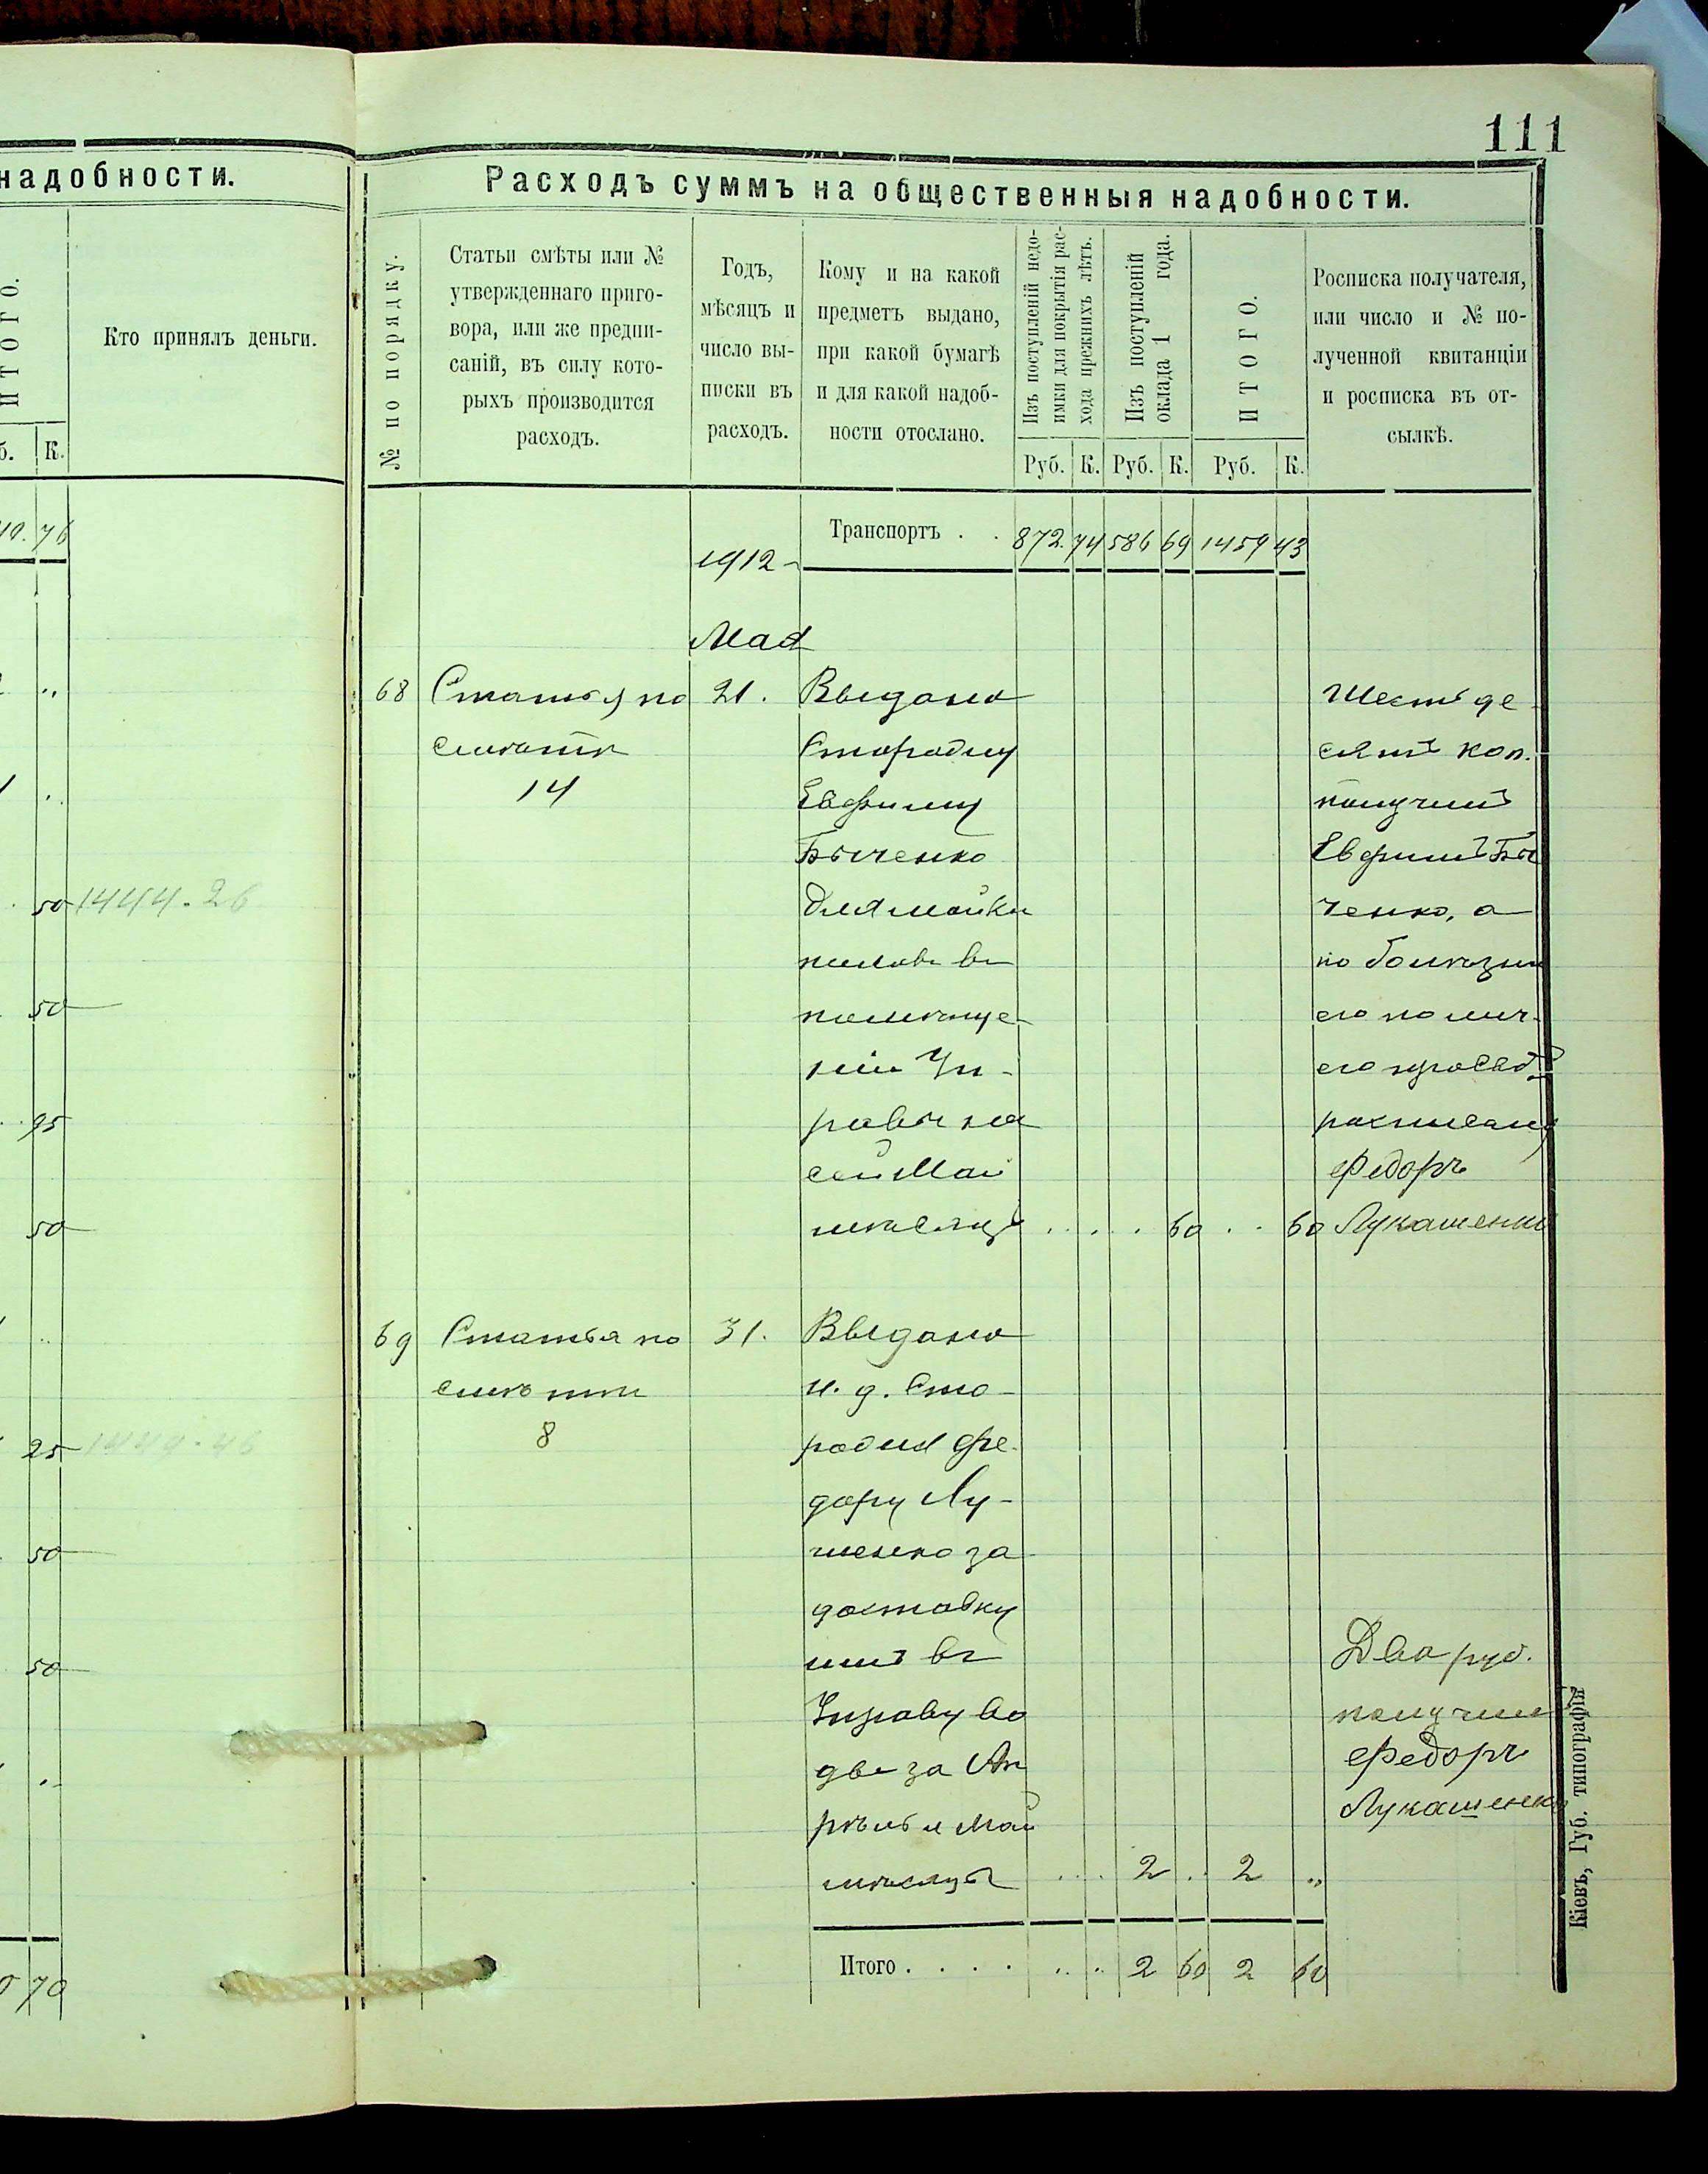 111
надобности.
ИТОГО.
Кто принялъ деньги.
К.
76
50 1444.26
50
95
50
25
50
50
70
Расходъ суммъ на общественныя надобности.
№ по порядку.
Статьи смѣты или №
утвержденнаго приго-
вора, или же предпи-
саній, въ силу кото-
рыхъ производится
расходъ.
Годъ,
мѣсяцъ и
число вы-
писки въ
расходъ.
Кому и на какой
предметъ выдано,
при какой бумагѣ
и для какой надоб-
ности отослано.
Изъ поступленій недо-
имки для покрытія рас-
хода прежнихъ лѣтъ.
Изъ поступленій
оклада 1 года.
ИТОГО.
Росписка получателя,
или число и № по-
лученной квитанціи
и росписка въ от-
сылкѣ.
Руб. К. Руб. К. Руб. К.
Транспортъ . . 872. 74 586 69 1459 43
1912-
Мая
68 Статья по 21. Выдано
смѣтѣ
14
Сторожу
Евфиму
Быченко
для мойки
половъ въ
помѣще-
ніи Уп-
равы на
сей Май
мѣсяцъ . . . . 60 . . 60
Шестьде-
сятъ коп.
получилъ
Евфимъ Бы
ченко, а
по болѣзни
его по лич.
его просьб.
росписался
Федоръ
Лукашенко
69 Статья по 31. Выдано
смѣтѣ
8
И. д. Сто-
рожа Фе-
дору Лу-
шенко за
доставку
въ
Управу во
ды за Ап
рѣль и Май
мѣсяцы . . . . 2 . 2 „
Два руб.
получилъ
Федоръ
Лукашенко
Итого . . . . . . . 2 60 2 60
Кіевъ, Губ. типографія